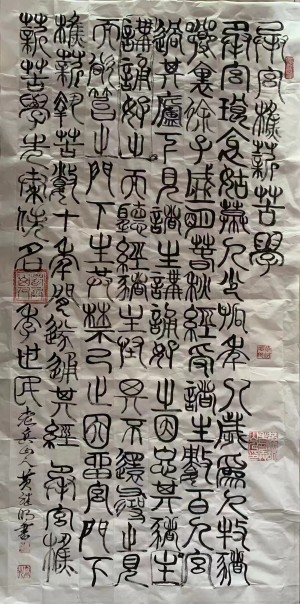 承宮樵薪苦學
承宮琅邪姑幕人少孤年八歲為人牧豬
鄉里徐子盛明春秋經授諸生數百人宮
過其廬下見諸生講誦好之因忘其豬生
講誦好之而聽經豬主怪其不還尋之見
而欲笞之門下生共禁止因留宮門下
樵薪執苦數十年間遂通其經承宮樵
薪苦學名李世民老兵山人黃明書